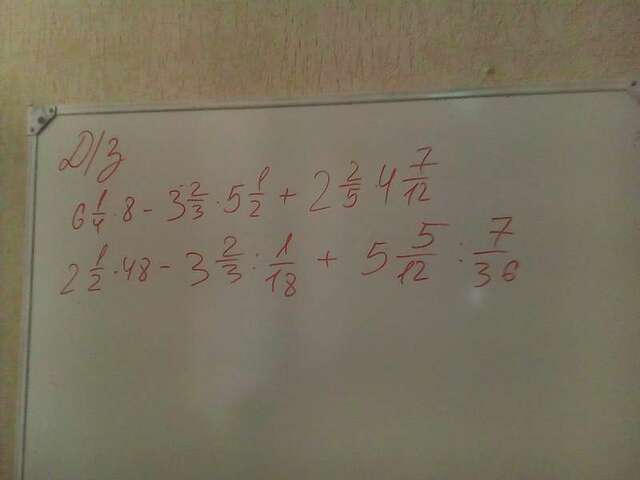 Д/З
6 1/4 · 8 - 3 2/3 · 5 1/2 + 2 2/5 · 4 7/12
2 1/2 · 48 - 3 2/3 : 1/18 + 5 5/12 : 7/36